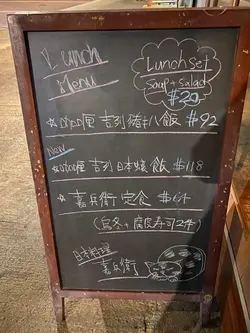 Lunch
Menu
Lunch Set
Soup + Salad
$20
吉列猪扒飯 $92
New
吉列日本蠔飯 $118
☆ 嘉兵衛定食 $64
(烏冬 + 腐皮寿司2件)
日本料理
嘉兵衛